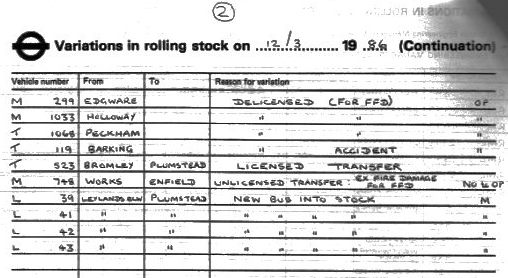 2
Variations in rolling stock on 12/3 19 86 (Continuation)
Vehicle number From To Reason for variation
M 299 EDGWARE DELICENSED (FOR FFD) OP
M 1033 HOLLOWAY " " "
T 1068 PECKHAM " " "
T 119 BARKING " ACCIDENT "
T 523 BROMLEY PLUMSTEAD LICENSED TRANSFER
M 748 WORKS ENFIELD UNLICENSED TRANSFER: EX FIRE DAMAGE FOR FFD NO OP
L 39 PLUMSTEAD NEW BUS INTO STOCK M
L 41 " " " " " " "
L 42 " " " " " " "
L 43 " " " " " " "